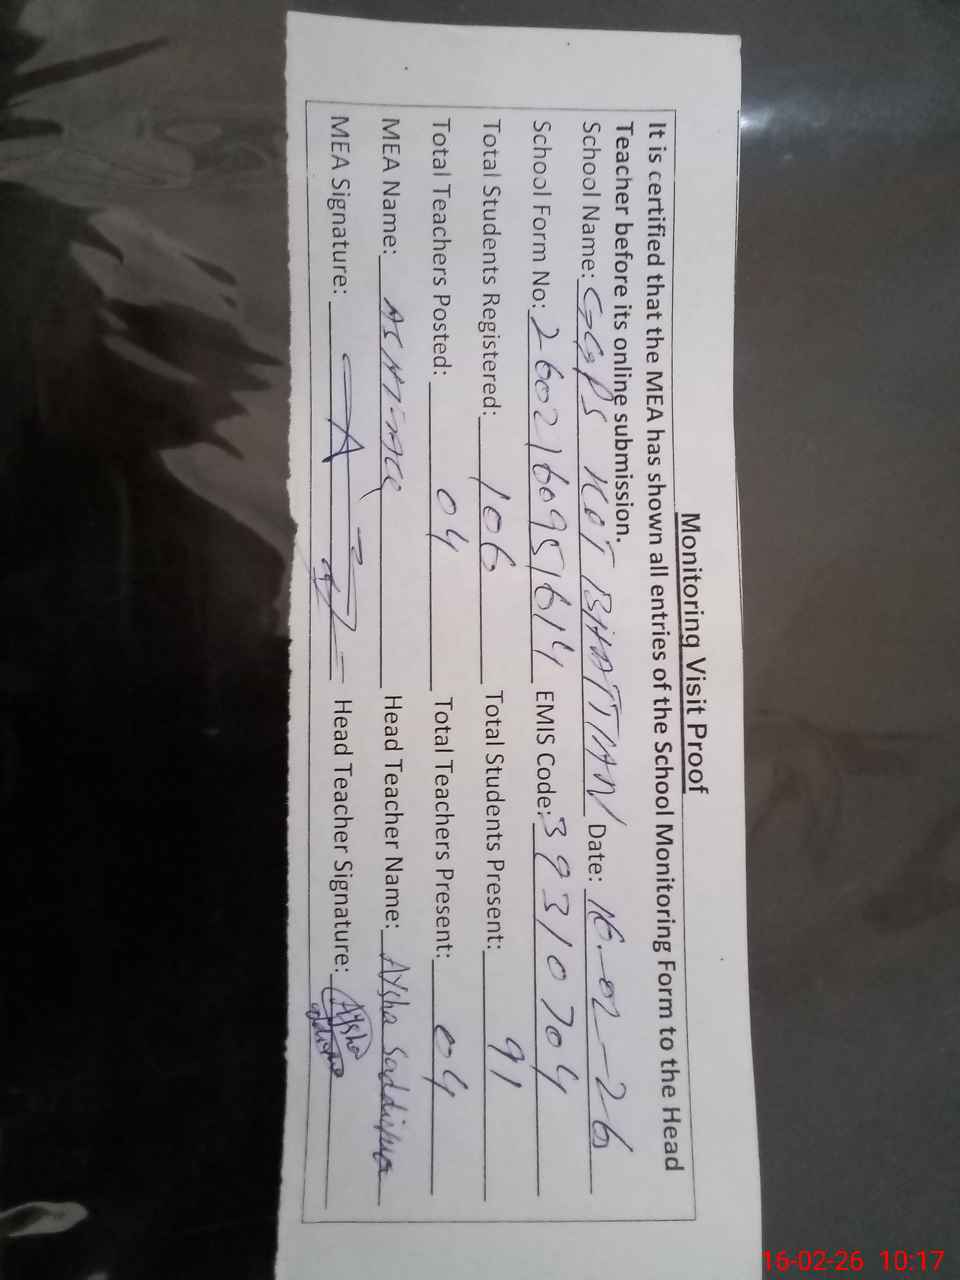 Monitoring Visit Proof
It is certified that the MEA has shown all entries of the School Monitoring Form to the Head
Teacher before its online submission.
School Name: GGPS KOT BHATTIAN Date: 16-02-26
School Form No: 2602160951614 EMIS Code: 39310704
Total Students Registered: 106 Total Students Present: 91
Total Teachers Posted: 04 Total Teachers Present: 04
MEA Name: Head Teacher Name: Aysha Saddiqua
MEA Signature: Head Teacher Signature: Aysha
16-02-26 10:17